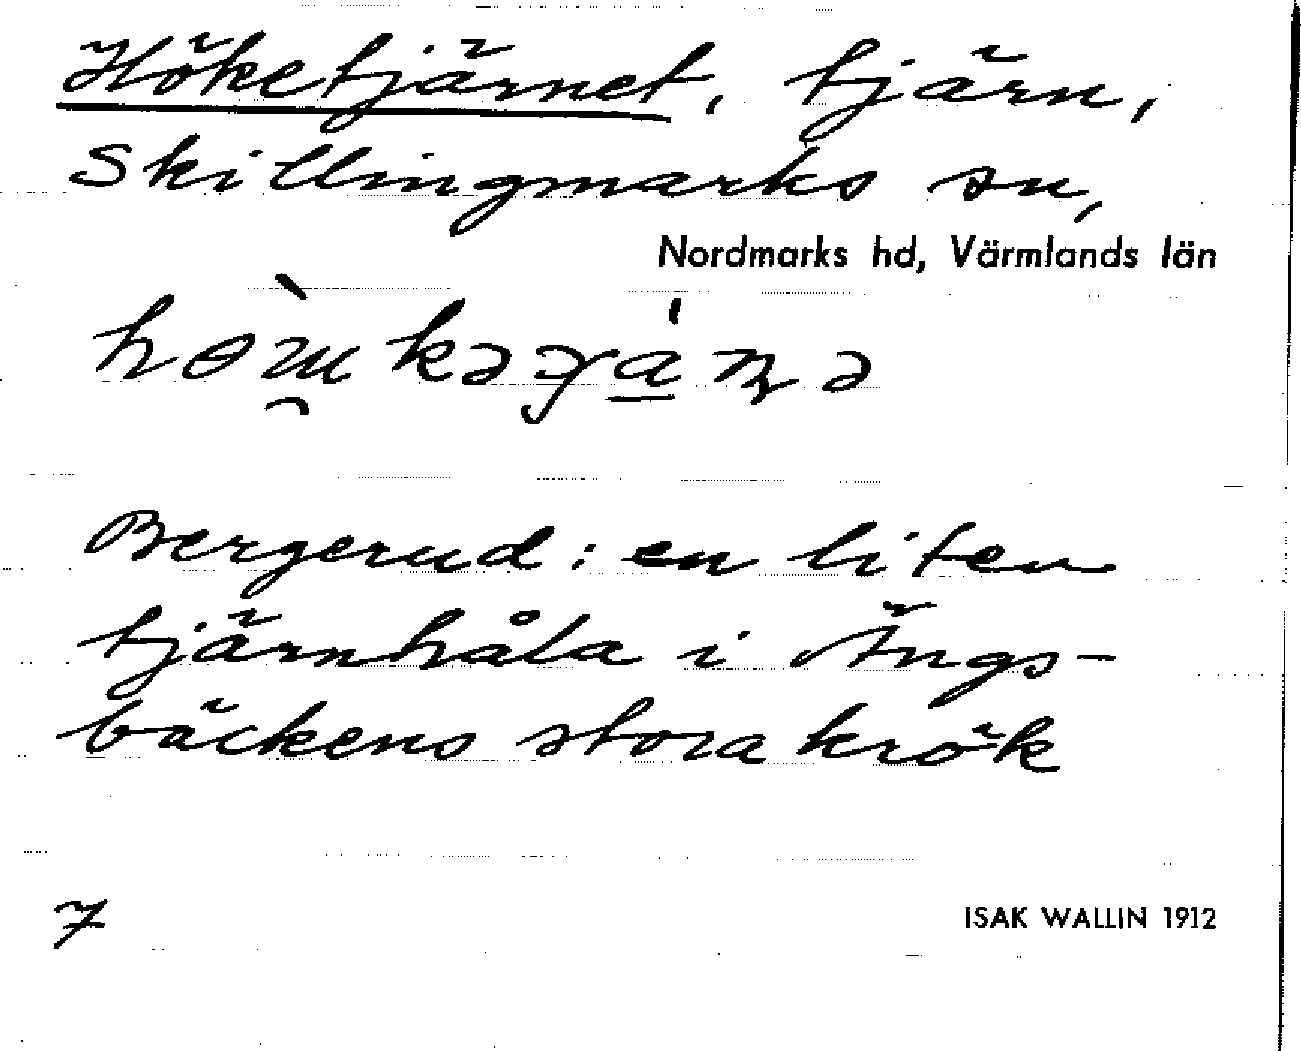 Höketjärnet, tjärn,
Skillingmarks sn,
Nordmarks hd, Värmlands län
Bergerud: en liten
tjärnhåla i Ängs-
bäckens stora krök
7
ISAK WALLIN 1912